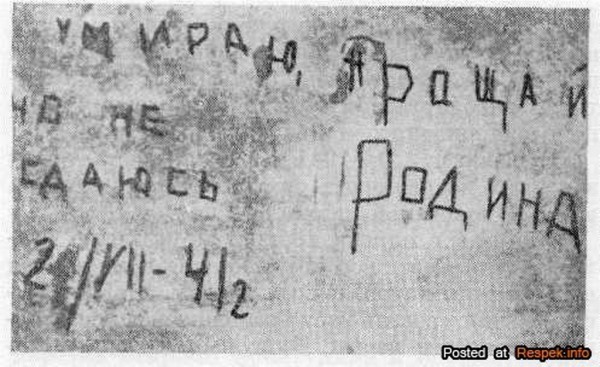 УМИРАЮ,
НО НЕ
СДАЮСЬ
20/VII-41г
ПРОЩАЙ
РОДИНА
Posted at Respek.info